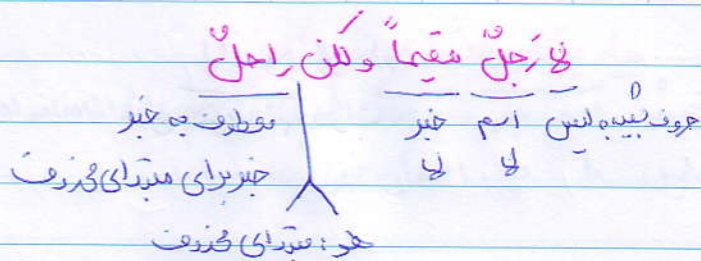 لا رَجلٌ مقیماً ولکن راحلٌ
حروف شبیه به لیس اسم خبر معطوف به خبر
لا لا خبر برای مبتدای محذوف
هو: مبتدای محذوف